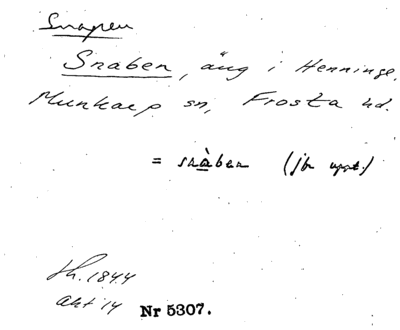 Snapen
Snaben, äng i Henninge,
Munkarp sn, Frosta hd.
= snàben (jbr uppt.)
Sk. 1844
Akt 14 Nr 5307.